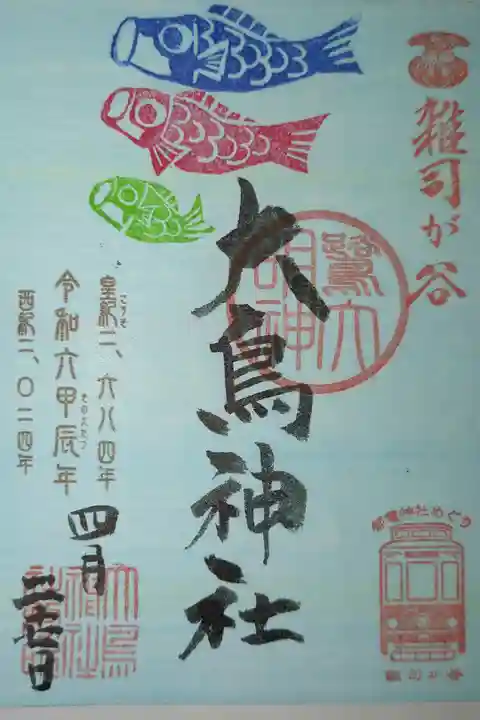 雑司が谷
大鳥神社
鷺大明神
皇紀二、六八四年
こうき
令和六甲辰年
きのえたつ
西紀二、〇二四年
四月
二十七日
都電神社めぐり